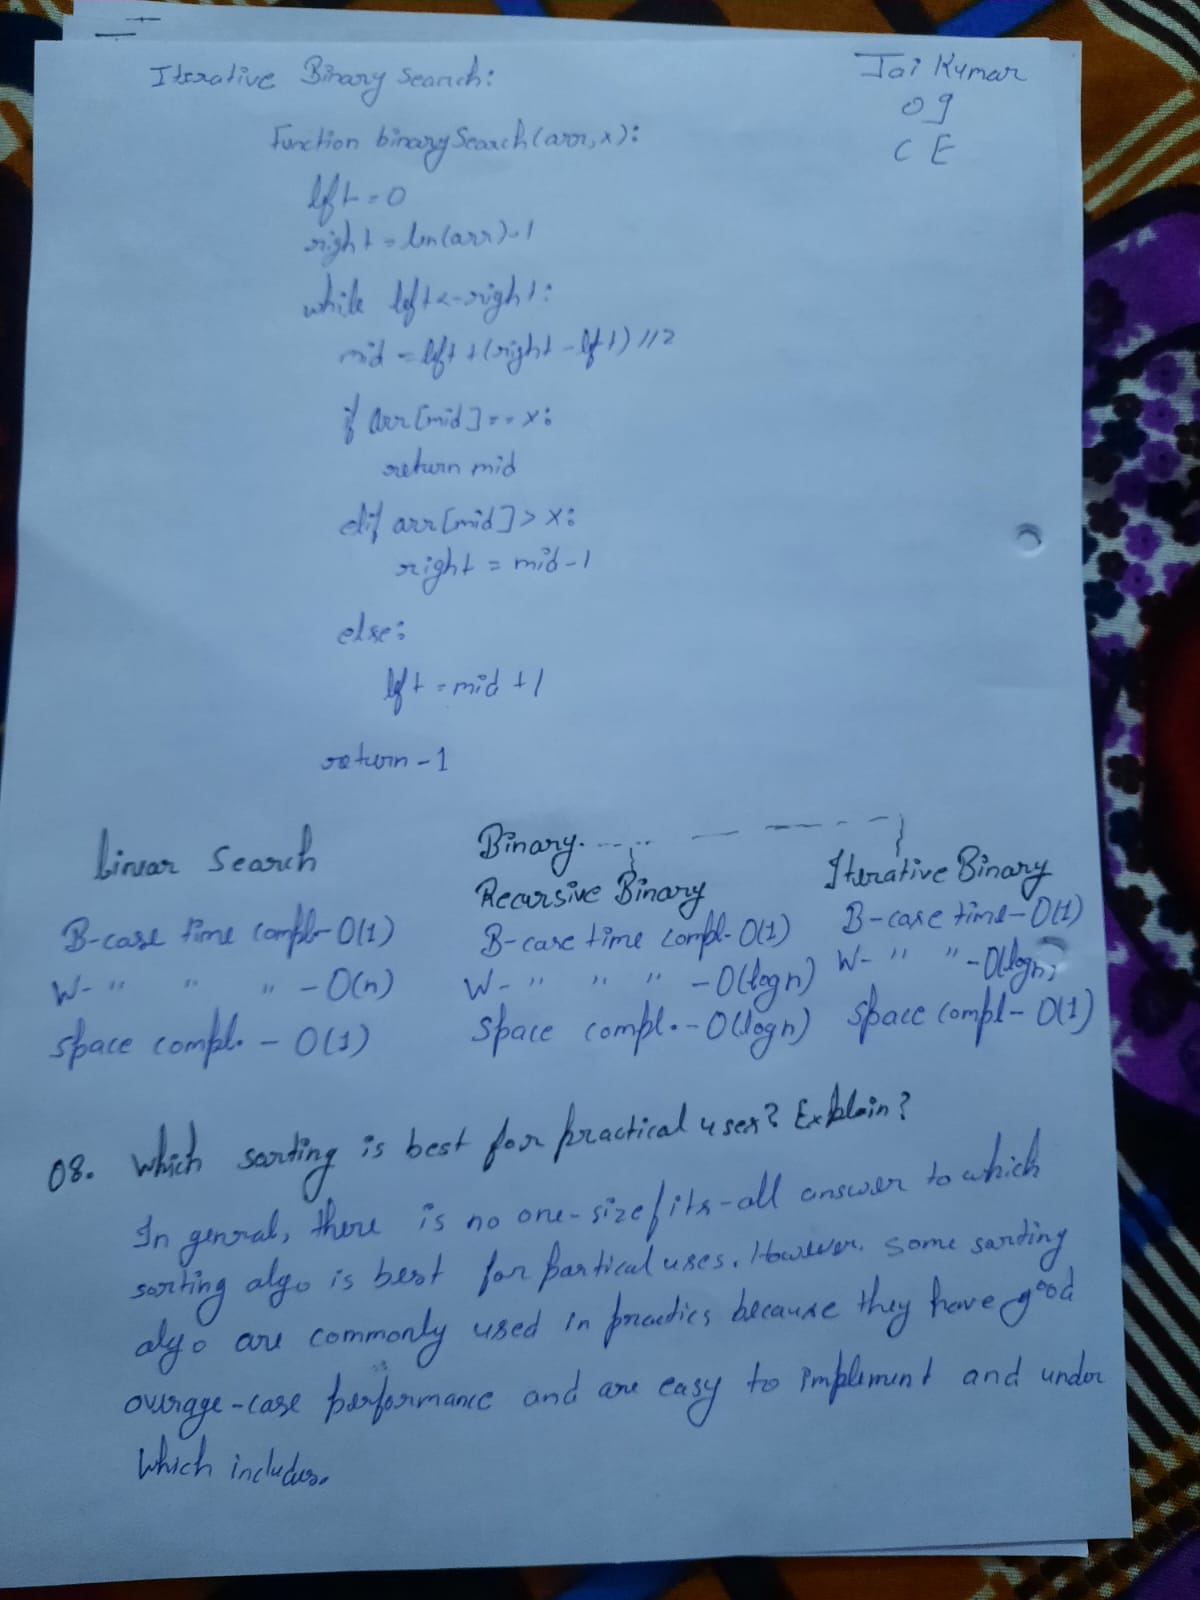 Iterative Binary Search:
Jai Kumar
09
CE
Function binarySearch(arr, x):
left = 0
right = len(arr)-1
while left <= right:
mid = left + (right - left) // 2
if arr[mid] == x:
return mid
elif arr[mid] > x:
right = mid - 1
else:
left = mid + 1
return -1
Linear Search
Binary
Recursive Binary
Iterative Binary
B-case time compl- O(1)
W- " " " - O(n)
Space compl. - O(1)
B-case time compl- O(1)
W- " " " - O(logn)
Space compl. - O(logn)
B-case time - O(1)
W- " " - O(logn)
Space compl - O(1)
08. Which sorting is best for practical uses? Explain?
In genral, there is no one-size fits-all answer to which
sorting algo is best for partical uses. However, some sorting
algo are commonly used in practics because they have good
average-case performance and are easy to implement and under
Which includes.